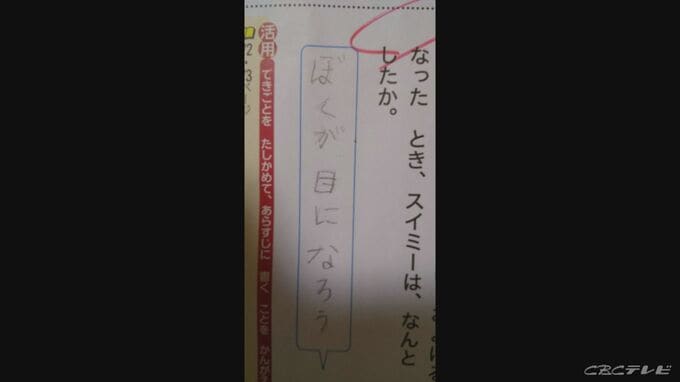 なった とき、スイミーは、なんと
したか。
ぼくが 目になろう
活用 できごとを たしかめて、あらすじに 書く ことを かんが
CBCテレビ